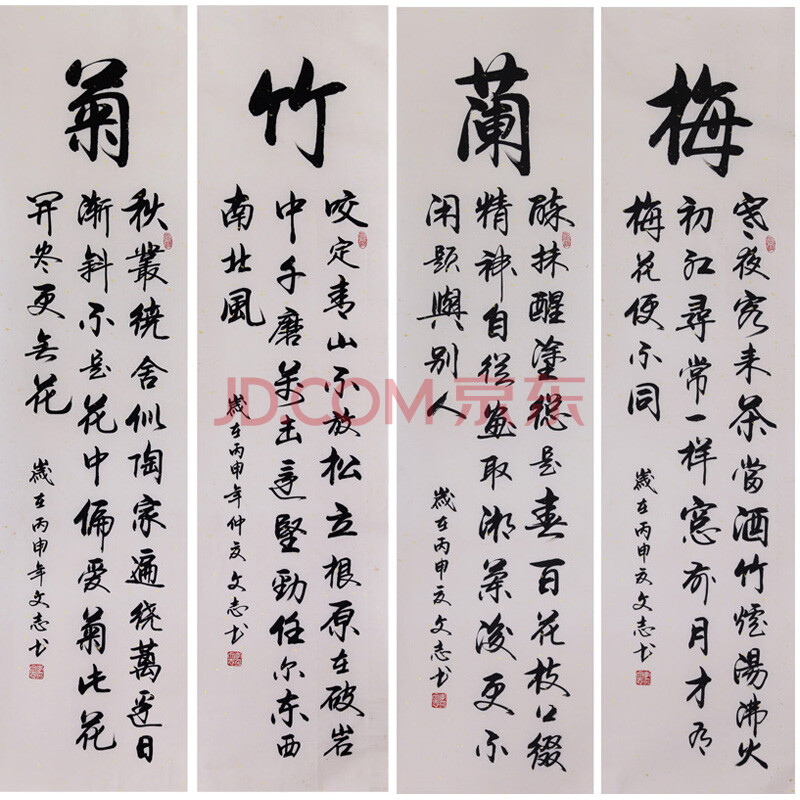 梅
寒夜客来茶當酒竹爐湯沸火
初红尋常一样窓前月才有
梅花便不同
歲在丙申夏文志书
蘭
酥抹醒塗總是春百花枝口綴
精神自從画取湘葉後更不
闲题與别人
歲在丙申夏文志书
竹
咬定青山不放松立根原在破岩
中千磨万击还堅勁任尔东西
南北風
歲在丙申年仲夏文志书
菊
秋叢绕舍似陶家遍绕萬边日
渐斜不是花中偏爱菊此花
开尽更无花
歲在丙申年文志书
JD.COM 京东